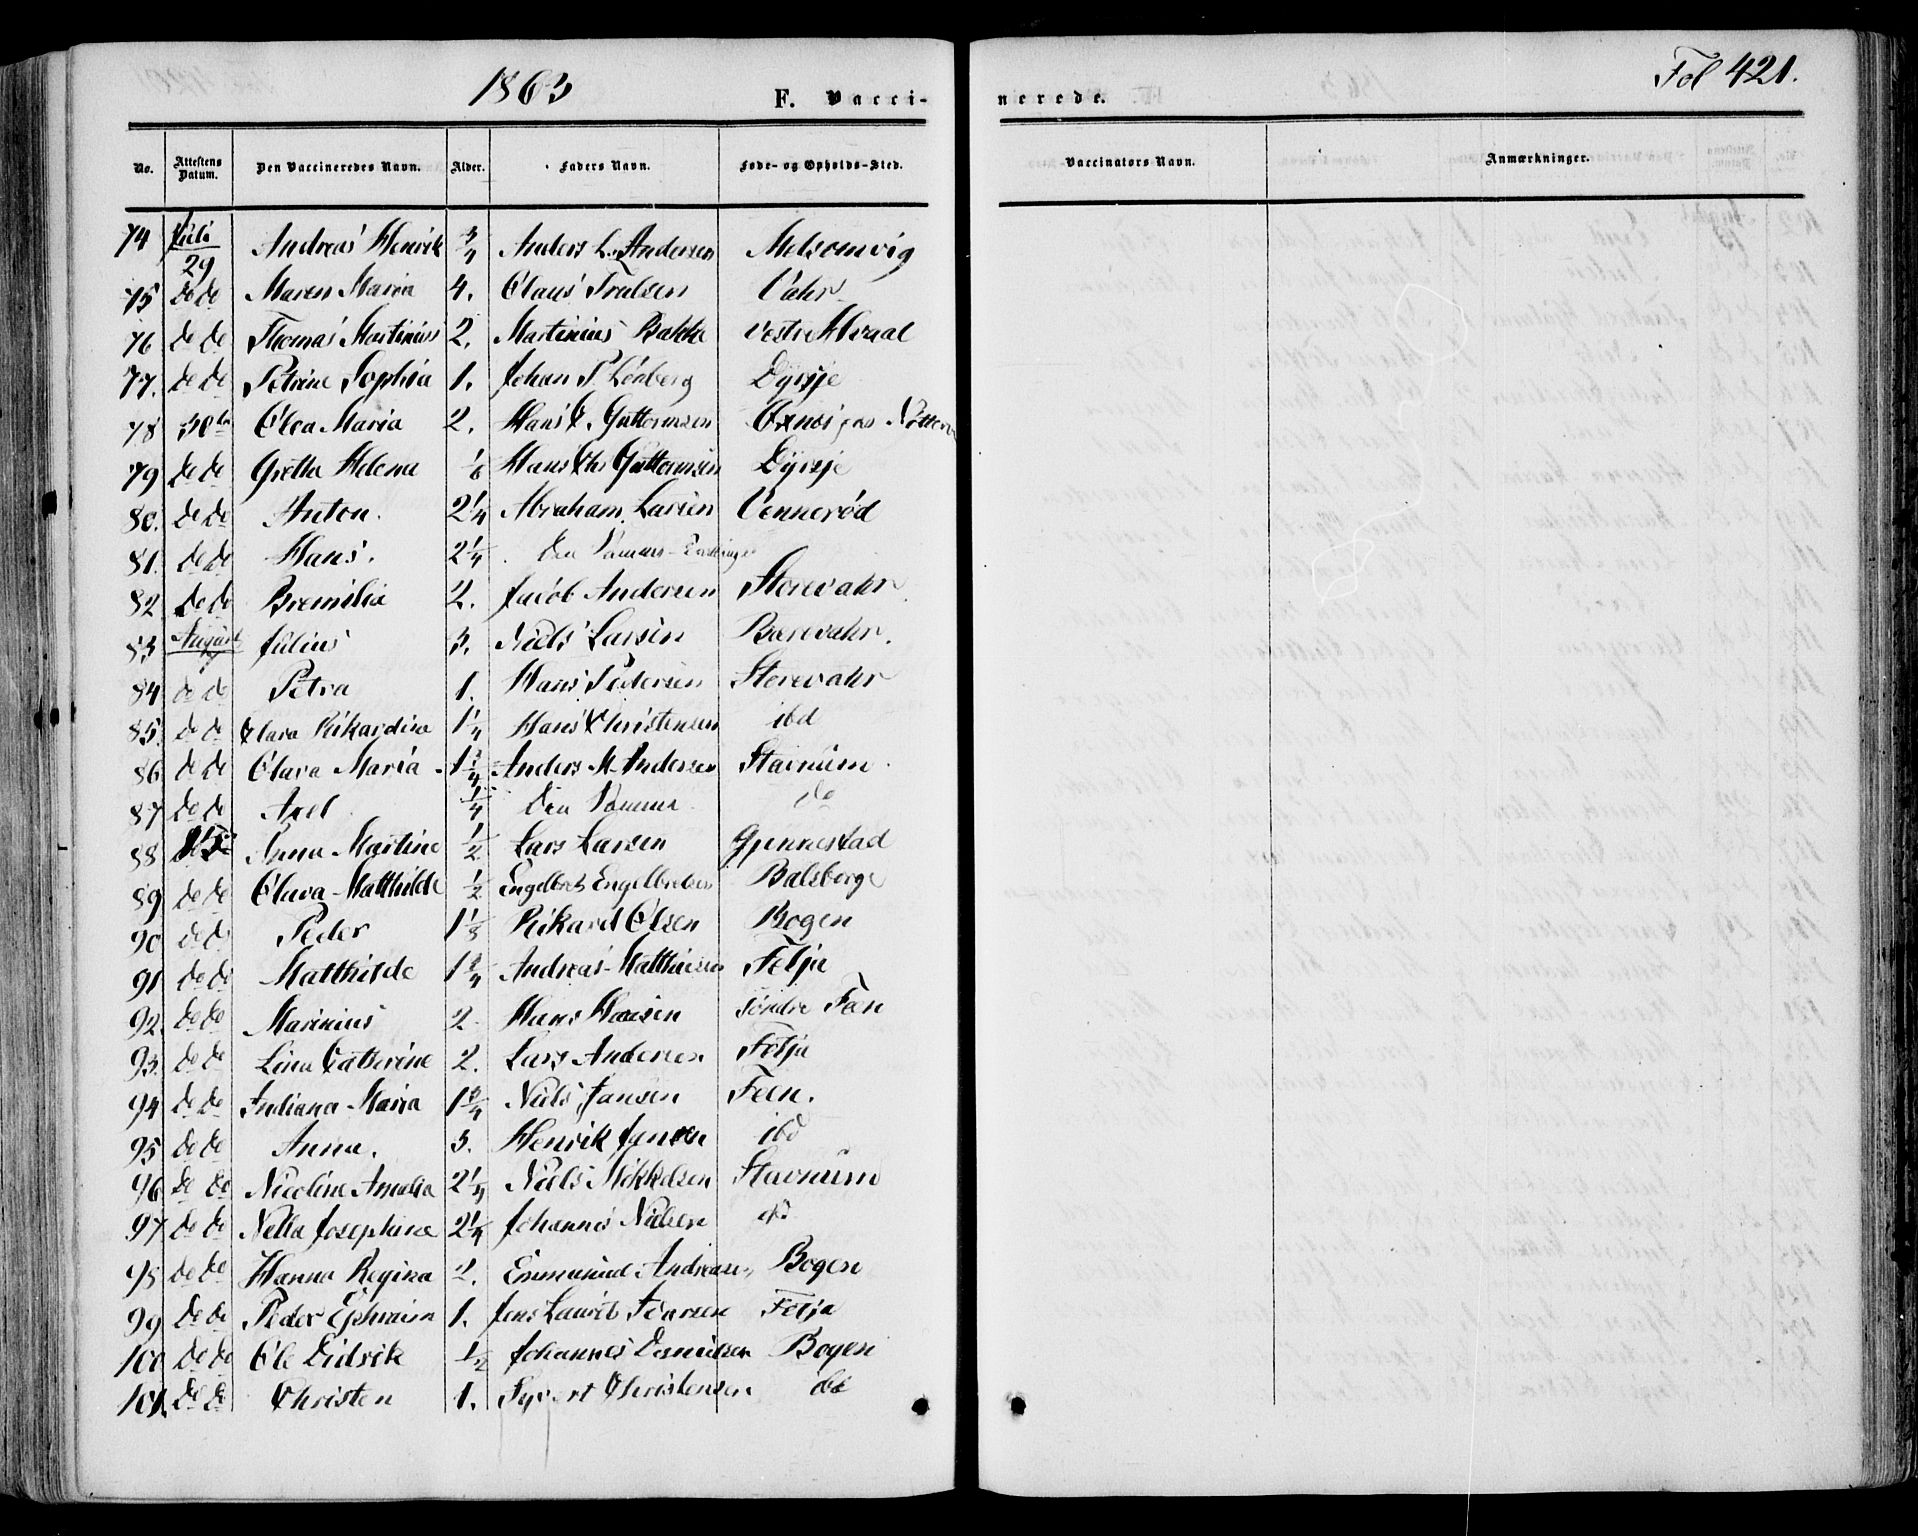 1863
F. Vacci-
nerede.
Fol 421.
No. Attestens Datum. Den Vaccineredes Navn. Alder. Faders Navn. Føde- og Opholds-Sted.
Vaccinators Navn. Anmærkninger.
74 Juli 29 Andreas Henrik 3/4 Anders L. Andersen Melsomvig
75 do do Maren Maria 4. Claus Trulsen Vahr
76 do do Thomas Martinius 2. Martinius Bakke Vestre
77. do do Petrine Sophia 1. Johan P. Lönberg Dÿrsje
78 30te Olea Maria 2. Hans C. Guttormsen
79 do do Grethe Helena 1/6 Hans Chr Guttormsen Dÿrsje
80. do do Anton. 2 1/4 Abraham Larsen Vennerød
81. do do Hans. 2 1/4 Den Samme
82 do do Bremilia 2. Jacob Andersen Storevahr
83 August Julius 3. Niels Larsen Borevahr.
84 do do Petra 1. Hans Pedersen Storevahr
85. do do Clara Rikardine 1 1/4 Hans Christensen ibd
86 do do Clara Maria 1 3/4 Anders M. Andersen Stavnum
87 do do Axel 1/4 Den Samme do
88 Anna Martine 1/2 Lars Larsen Gjennestad
89 do do Clara Matthilde 1/2 Engelbret Engelbretsen Balsberge
90 do do Peder 1 1/8 Rikard Olsen Bogen
91 do do Matthilde 1 3/4 Andreas Matthiesen Fetja
92. do do Marinius 2 Hans Hansen søndre Foen
93. do do Lina Catherine 2. Lars Andersen Fetja
94 do do Indiana Maria 1 3/4 Niels Jansen Feen.
95 do do Anna. 3. Henrik Jansen ibd
96 do do Nicoline Amalia 2 1/4 Niels Mikkelsen Stavnum
97 do do Nella Josephine 2 1/4 Johannes Nielsen do
98 do do Hanna Regina 2. Emmanuel Andreasen Bogen
99 do do Peder Ephraim 1. Jens Laurits Fetja
100 do do Ole Didrik 1/2 Johannes Bogen
101. do do Christen 1. Syvert Christensen ibd